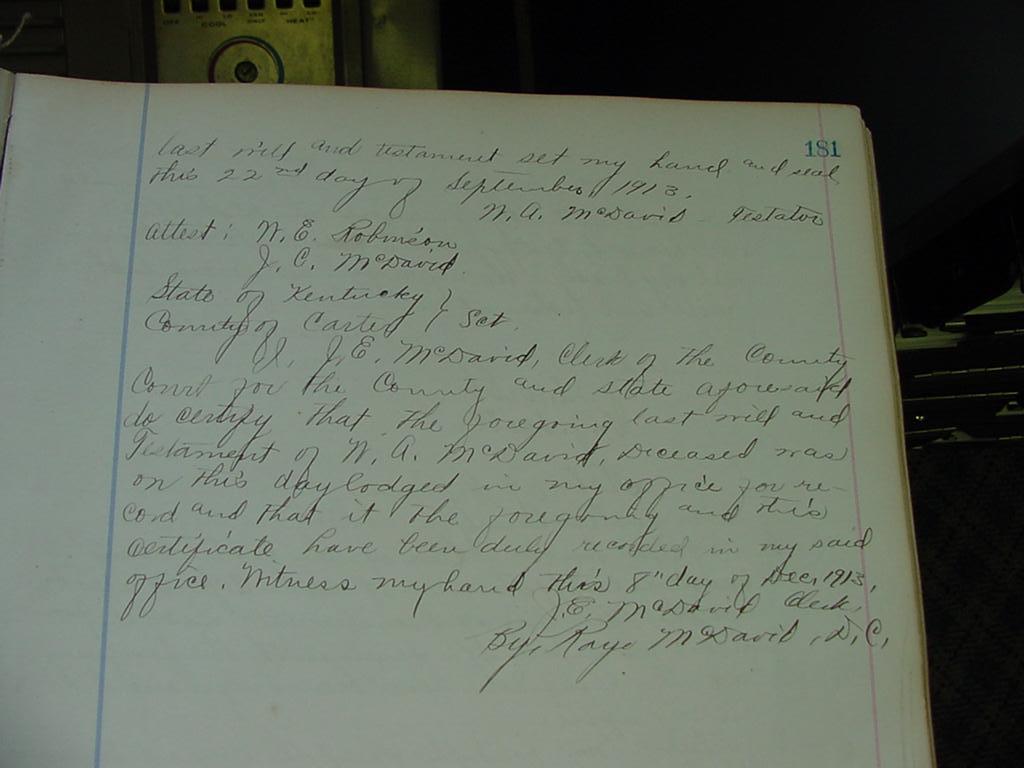 OFF HI LO FAN ONLY LO HI
COOL HEAT
181
last will and testament set my hand and seal
this 22nd day of September, 1913.
W. A. McDavid Testator
attest: W. E. Robinson
J. C. McDavid.
State of Kentucky }
County of Carter } Sct.
I, J. E. McDavid, Clerk of the County
Court for the County and state aforesaid
do certify that the foregoing last will and
Testament of W. A. McDavid, deceased was
on this day lodged in my office for re-
cord and that it the foregoing and this
certificate have been duly recorded in my said
office. Witness my hand this 8" day of Dec, 1913.
J. E. McDavid Clerk,
By, Kaye McDavid, D. C.